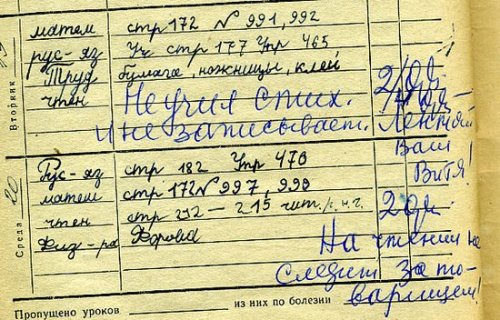 Вторник
матем стр 172 № 991, 992
рус-яз Уч стр 177 Упр 465
Труд бумага, ножницы, клей 2/ди.
чтен Не учил стих. Лентяй
и не записывает. Ваш
Витя!
Среда 20
Рус-яз стр 182 Упр 470
матем стр 172 № 997, 998
чтен стр 212 — 215 чит. 2
Физ-ра Форма
На чтении не
следит за то-
варищем!
Пропущено уроков из них по болезни